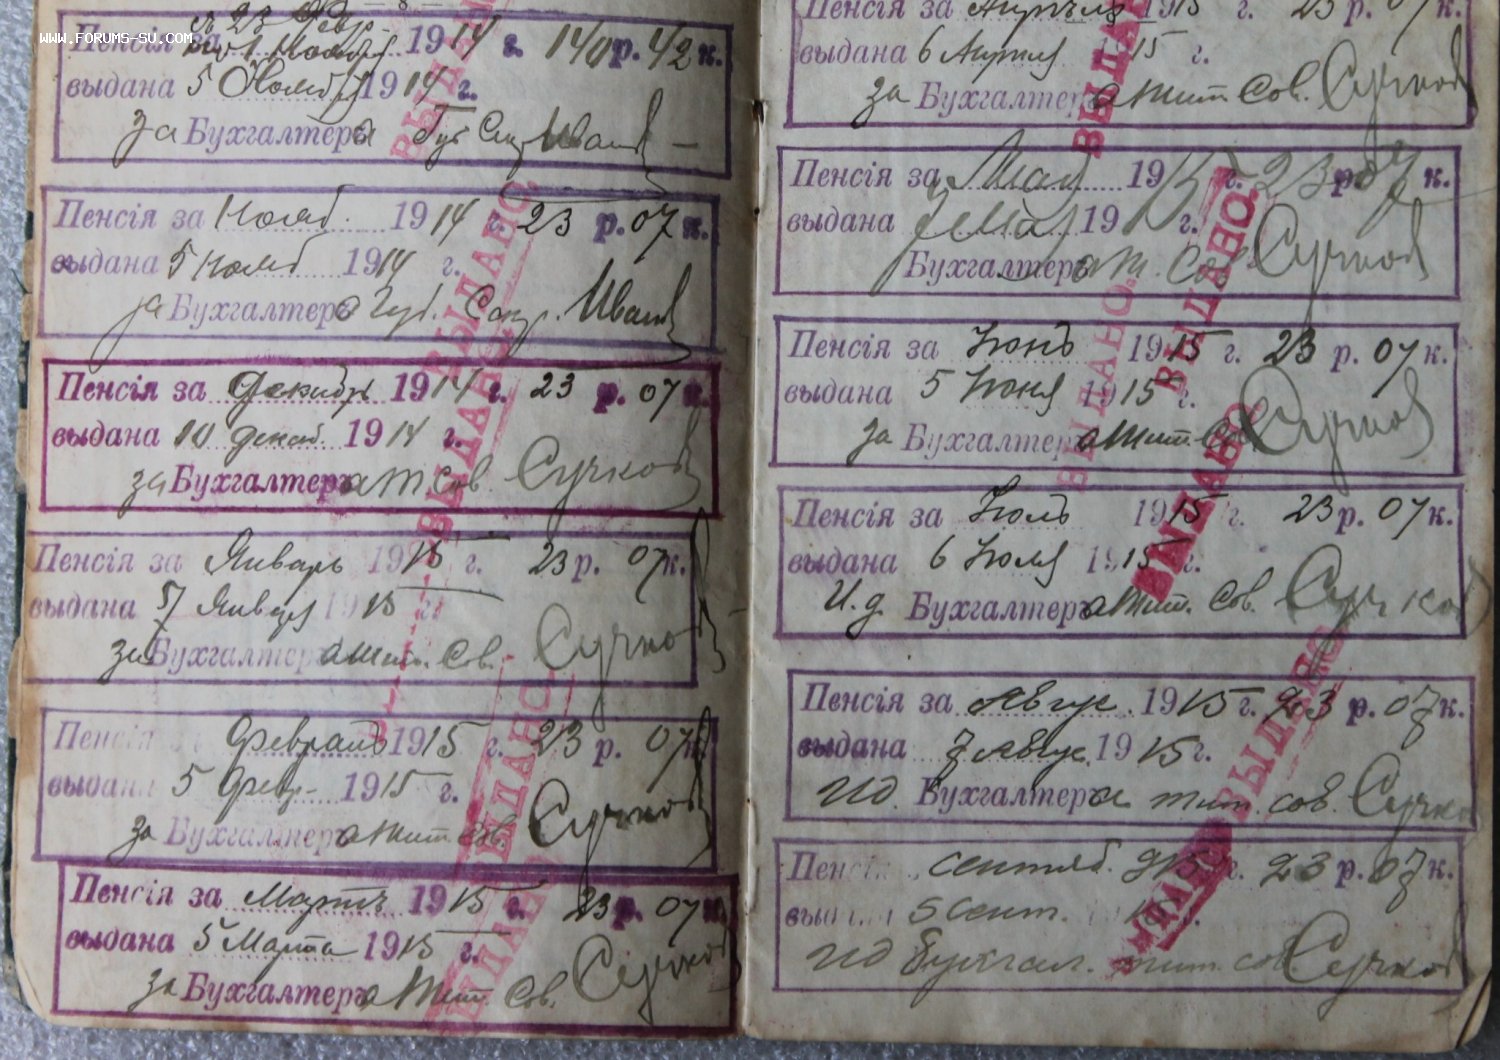 www.FORUMS-SU.com
с 23 Фвр.
Пенсія за по 1 Ноября 1914 г. 140 р. 42 к.
выдана 5 Ноября 1914 г.
за Бухгалтера Губ. Секр. Иванов
Пенсія за Нояб. 1914 г. 23 р. 07 к.
выдана 5 Нояб 1914 г.
за Бухгалтера Губ. Секр. Иванов
Пенсія за Декабрь 1914 г. 23 р. 07 к.
выдана 10 Декаб. 1914 г.
за Бухгалтера Тит Сов. Сучков
Пенсія за Январь 1915 г. 23 р. 07 к.
выдана 5 Января 1915 г.
за Бухгалтера Тит. Сов. Сучков
Пенсія за Февраль 1915 г. 23 р. 07 к.
выдана 5 Февр. 1915 г.
за Бухгалтера Тит. Сов. Сучков
Пенсія за Мартъ 1915 г. 23 р. 07 к.
выдана 5 Марта 1915 г.
за Бухгалтера Тит. Сов. Сучков
ВЫДАНО.
ВЫДАНО.
ВЫДАНО.
ВЫДАНО.
ВЫДАНО.
Пенсія за Апрѣль 1915 г. 23 р. 07 к.
выдана 6 Апрѣля 1915 г.
за Бухгалтера Тит Сов. Сучков
Пенсія за Май 1915 г. 23 р. 07 к.
выдана Мая 1915 г.
Бухгалтера Т. Сов. Сучков
Пенсія за Іюнь 1915 г. 23 р. 07 к.
выдана 5 Іюня 1915 г.
за Бухгалтера Тит. Сов. Сучков
Пенсія за Іюль 1915 г. 23 р. 07 к.
выдана 6 Іюля 1915 г.
И.д. Бухгалтера Тит. Сов. Сучков
Пенсія за Авгус. 1915 г. 23 р. 07 к.
выдана 7 Авгус. 1915 г.
ИД. Бухгалтера тит. сов. Сучков
Пенсія за сентяб. 915 г. 23 р. 07 к.
выдана 5 Сент. 1915 г.
ИД Бухгал. тит. сов. Сучков
ВЫДАНО.
ВЫДАНО.
ВЫДАНО.
ВЫДАНО
ВЫДАНО
ВЫДАНО